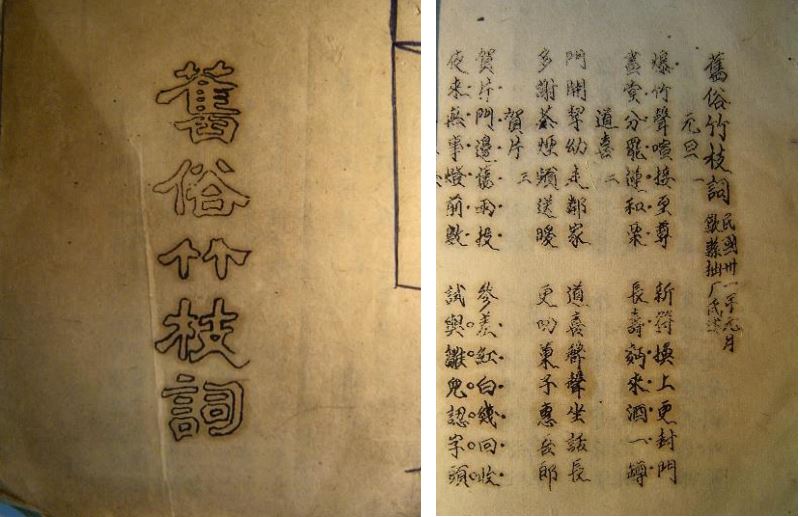 舊俗竹枝詞
舊俗竹枝詞 民國卅一年元月 歙縣拙厂氏
元旦 一
爆竹聲喧接至尊 新符換上更封門
盡賞分罷連和栗 長壽麪來酒一罇
道喜 二
門開挈幼走鄰家 道喜聲聲坐話長
多謝茶煙頻送暖 更叨菓子惠兒郎
賀片 三
賀片門邊舊雨投 參差紅白幾回收
夜來無事燈前數 試與雛兒認字頭